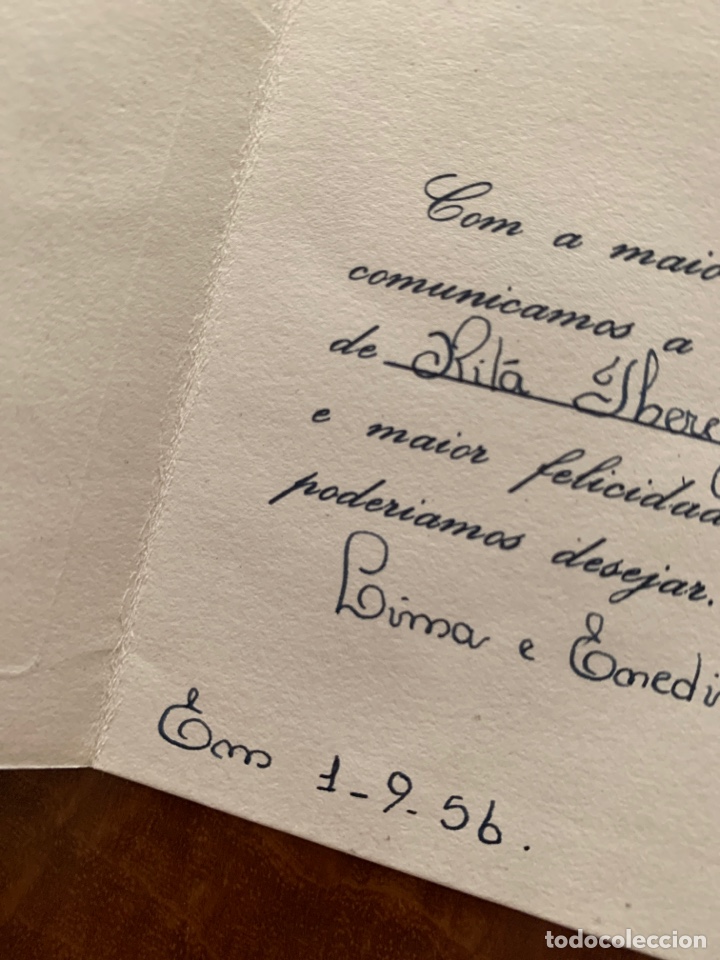 Com a maio
comunicamos a
de Ritá There
e maior felicidad
poderiamos desejar.
Lima e Enedi
Em 1-9-56.
todocoleccion
todocoleccion.net